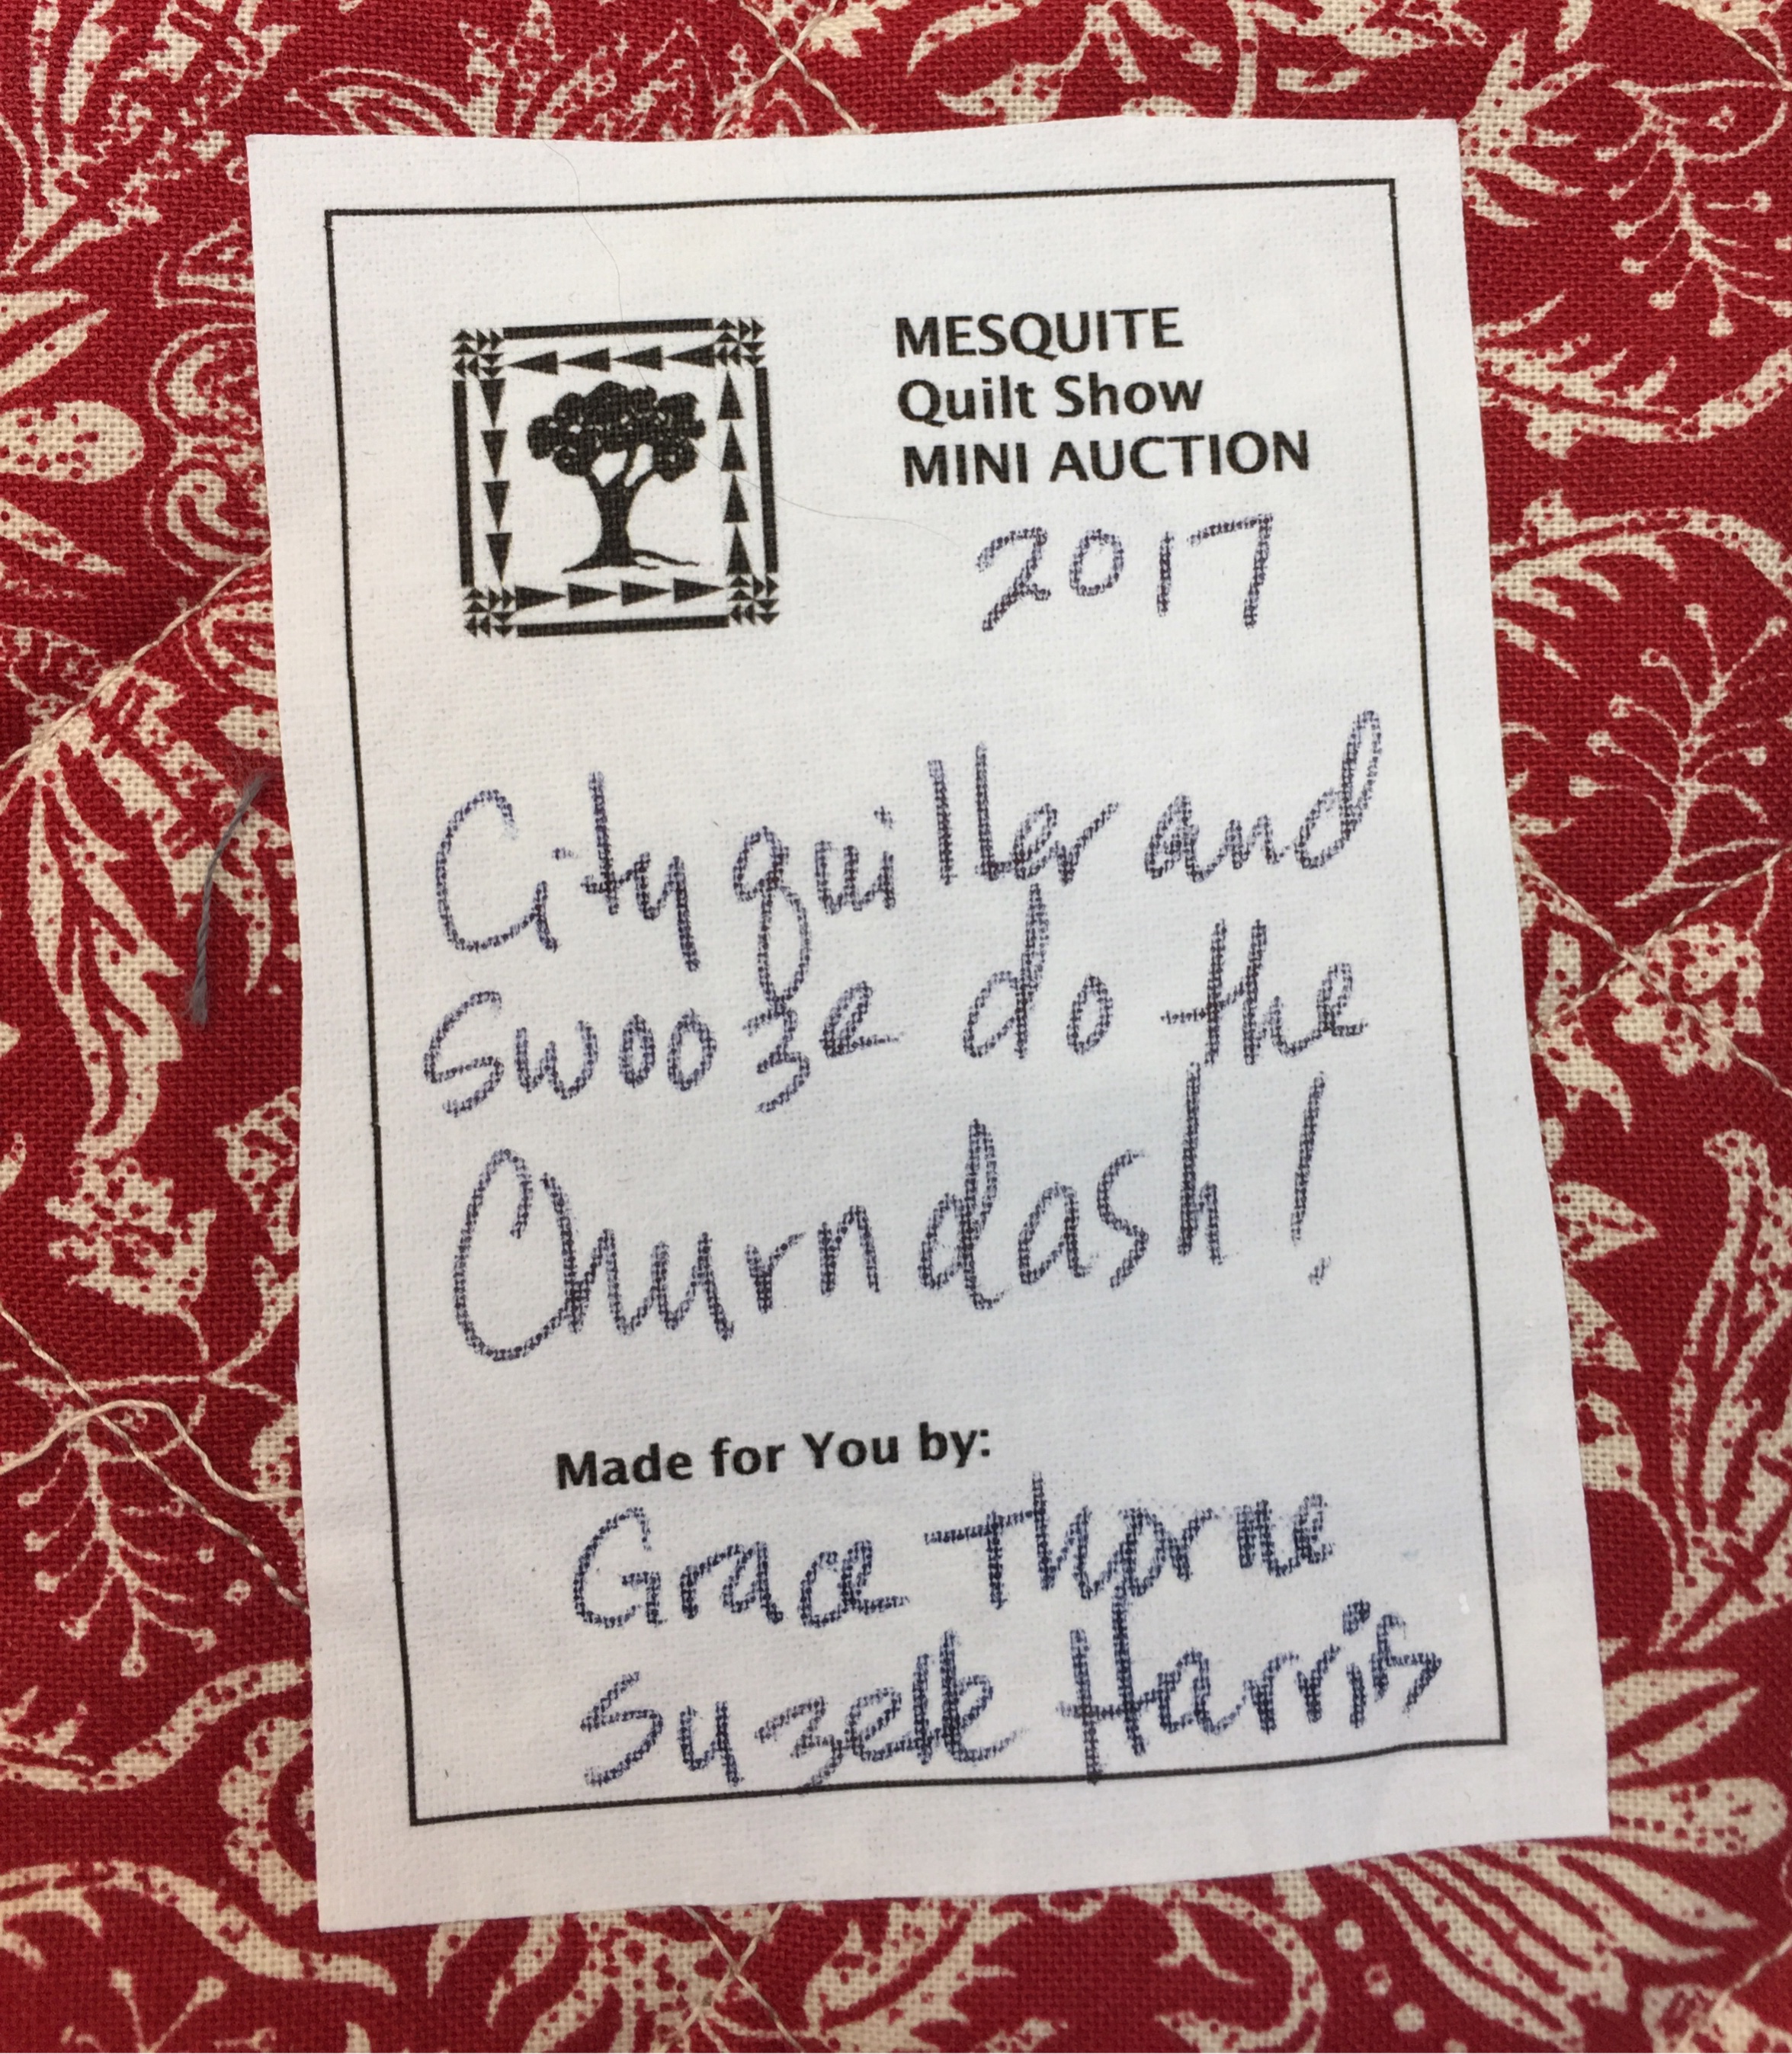 MESQUITE
Quilt Show
MINI AUCTION
2017
City quilter and
Swooze do the
Churn dash!
Made for You by:
Grace Thorne
Suzette Harris